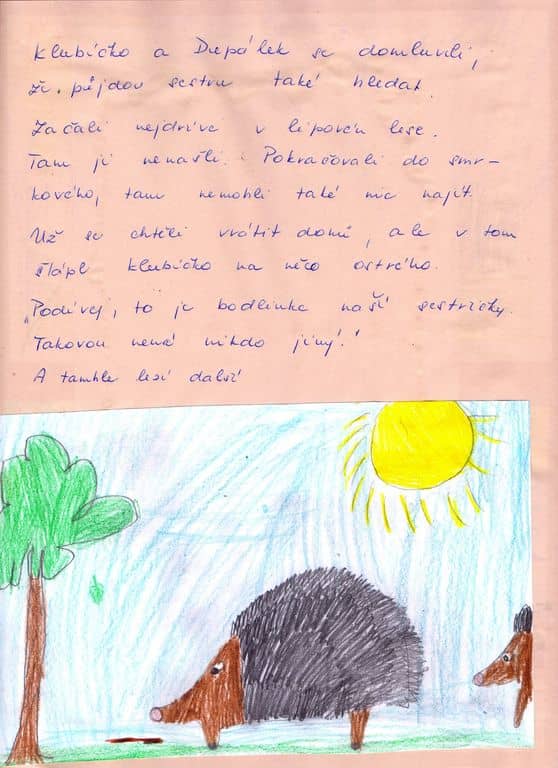 Klubíčko a Dupálek se domluvili,
že půjdou sestru také hledat.
Začali nejdříve v lipovém lese.
Tam ji nenašli. Pokračovali do smr-
kového, tam nemohli také nic najít.
Už se chtěli vrátit domů, ale v tom
šlápl klubíčko na něco ostrého.
„Podívej, to je bodlinka naší sestřičky.
Takovou nemá nikdo jiný!"
A tamhle leží další